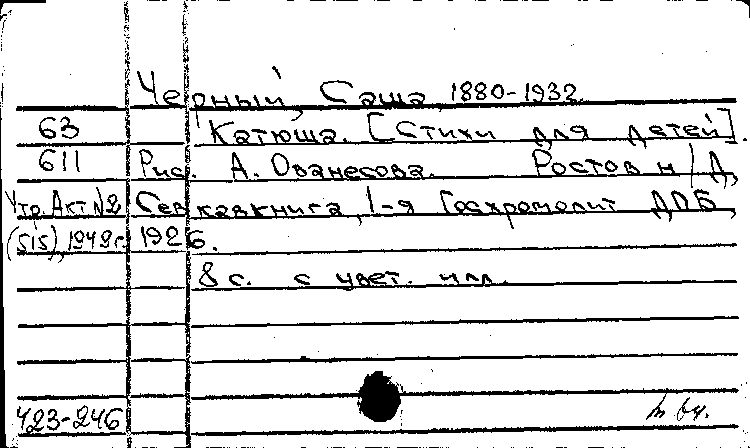 Черный, Саша, 1880-1932.
63 Катюша. [Стихи для детей].
611 Рис. А. Ованесова. Ростов н/Д,
Утр. Акт №2 Севкавкнига, 1-я Госхромолит ДПБ,
(515), 1949 г. 1926.
8 с. с цвет. илл.
423-246